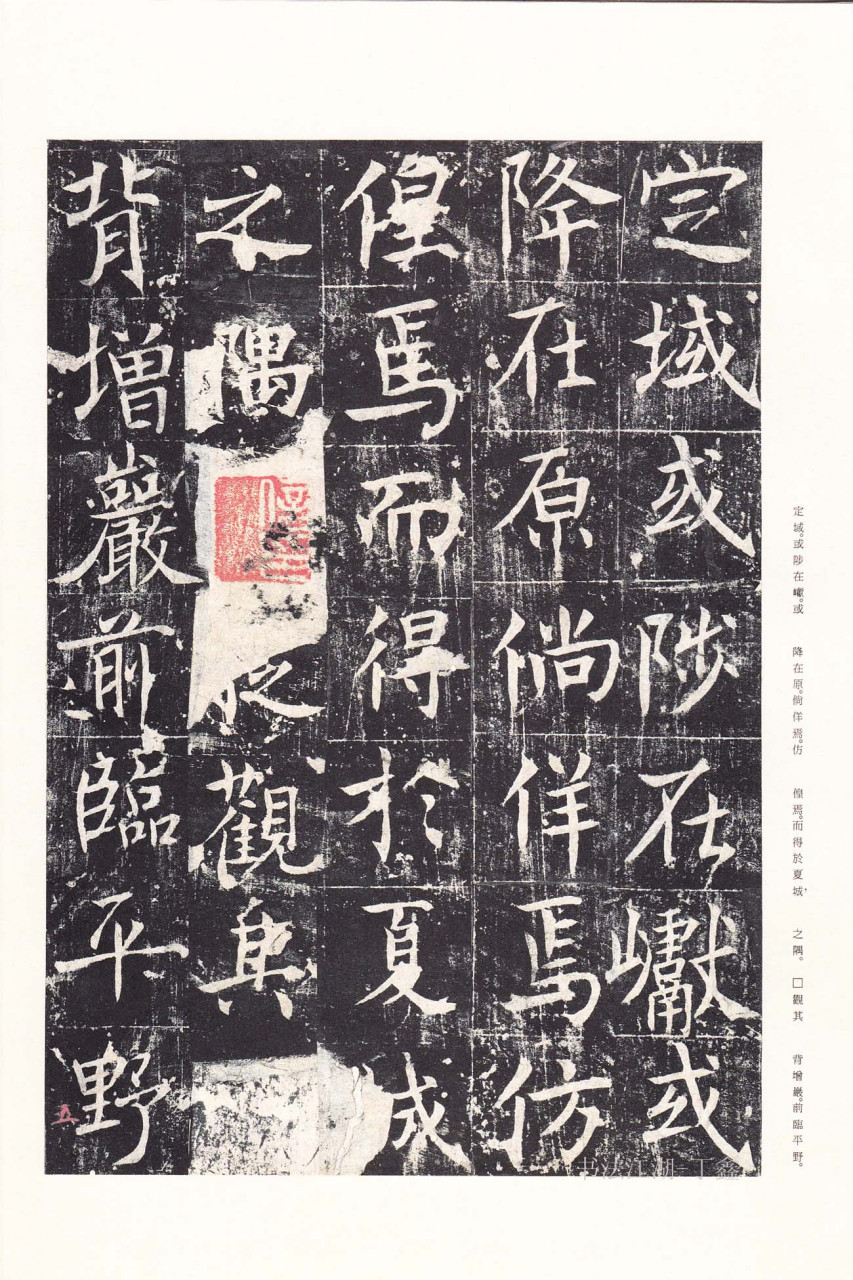 定域或陟在巘或
降在原倘佯焉仿
偟焉而得於夏城
之隅觀其
背增巖前臨平野
五
定域。或陟在巘。或
降在原。倘佯焉。仿
偟焉。而得於夏城,
之隅。□觀其
背增巖。前臨平野。
书法江湖-丁鑫